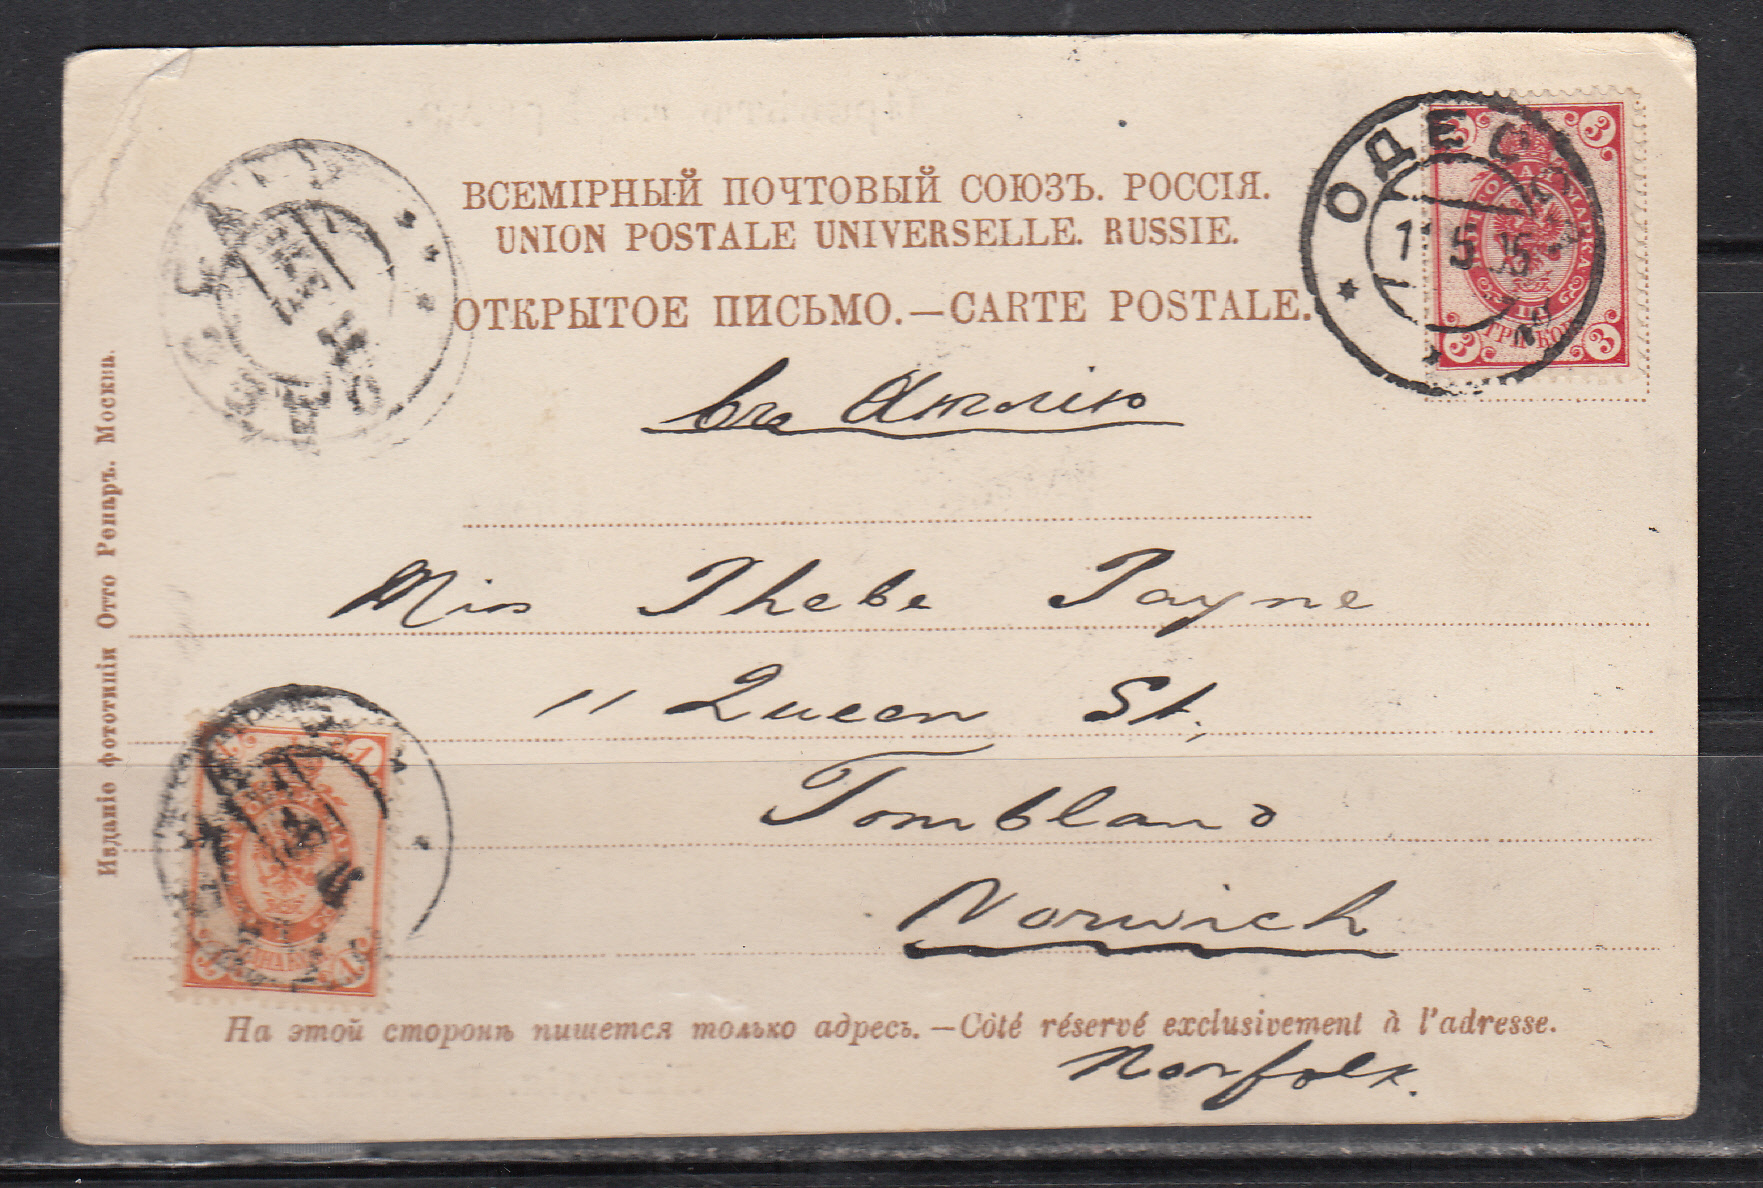 ВСЕМІРНЫЙ ПОЧТОВЫЙ СОЮЗЪ. РОССІЯ.
UNION POSTALE UNIVERSELLE. RUSSIE.
ОТКРЫТОЕ ПИСЬМО.—CARTE POSTALE.
ОДЕССА
3 3
МАРКА
3 3
въ Англію
Miss Phebe Payne
11 Queen St.
Tombland
Norwich
Norfolk.
1
1
На этой сторонѣ пишется только адресъ.—Côté réservé exclusivement à l'adresse.
Изданіе фототипіи Отто Ренаръ. Москва.